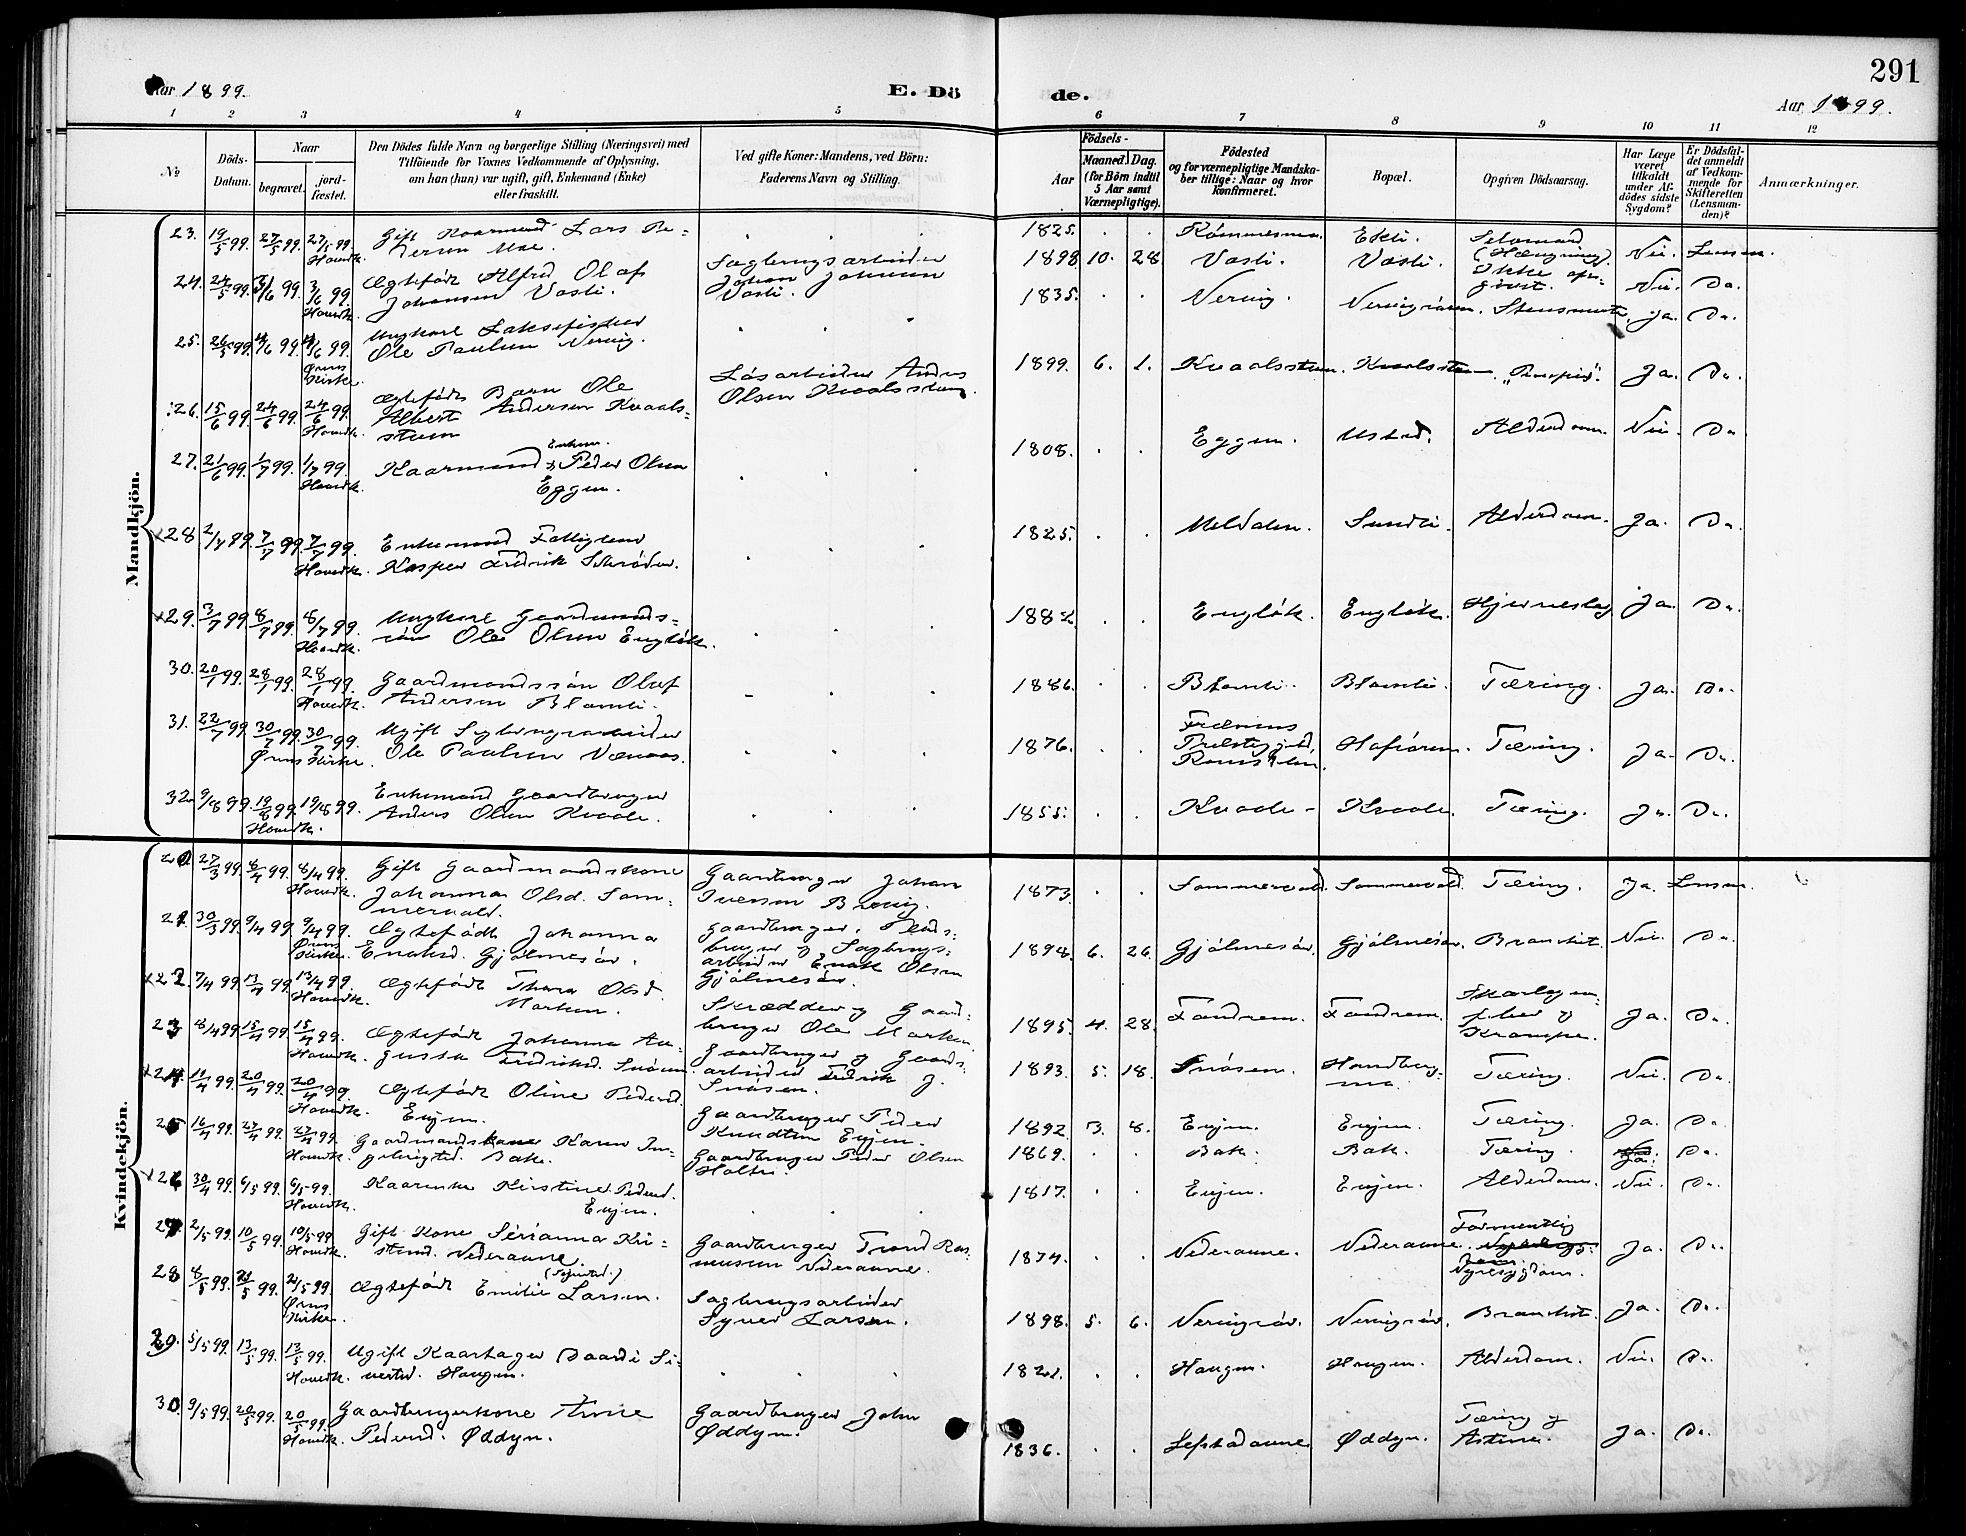 291
Aar 1899.
E. Dö
de.
Aar 1899.
1 2 3 4 5 6 7 8 9 10 11 12
No
Döds-
Datum.
Naar
begravet.
jord-
fæstet.
Den Dödes fulde Navn og borgerlige Stilling (Næringsvei) med
Tilföiende for Voxnes Vedkommende af Oplysning,
om han (hun) var ugift, gift, Enkemand (Enke)
eller fraskilt.
Ved gifte Koner: Mandens, ved Börn:
Faderens Navn og Stilling.
Födsels-
Aar
Maaned. Dag.
(for Börn indtil
5 Aar samt
Værnepligtige).
Födested
og for værnepligtige Mandska-
ber tillige: Naar og hvor
konfirmeret.
Bopæl.
Opgiven Dödsaarsag.
Har Læge
været
tilkaldt
under Af-
dödes sidste
Sygdom?
Er Dödsfal-
det anmeldt
af Vedkom-
mende for
Skifteretten
(Lensman-
den)?
Anmærkninger.
Mandkjön.
23. 19/5 99. 27/5 99. 27/5 99. Hovedk. Gift Kaarmand Lars Pe-
1825. Ekli. Selvmord (Hængning). Nei. Lensm.
24. 24/5 99. 3/6 99. 3/6 99. Hovedk. Ægtefødt Alfred Olaf
Johansen Vasli. Sagbrugsarbeider
Johan Johnsen
Vasli. 1898 10. 28. Vasli. Vasli. Ikke opgivet. Nei. Do.
25. 26/5 99. 4/6 99. 4/6 99. Ørens Kirke. Ungkarl Laksefisker
Ole Paulsen Nervig. 1835. Nervig. Ja. Do.
26. 15/6 99. 24/6 99. 24/6 99. Hovedk. Ægtefødt Barn Ole
Albert Andersen Kvaals-
Løsarbeider Anders
Olsen 1899. 6. 1. Ja. Do.
27. 21/6 99. 1/7 99. 1/7 99. Hovedk. Kaarmand Enkem. Peder Olsen
Eggen. 1808. Eggen. Alderdom. Nei. Do.
28. 2/7 99. 7/7 99. 7/7 99. Hovedk. Enkemand Fattiglem
Kasper Fredrik Schrøder. 1825. Meldalen. Sundli. Alderdom. Ja. Do.
29. 3/7 99. 8/7 99. 8/7 99. Hovedk. Ungkarl Gaardmands-
søn Ole Olsen Engløk. 1882. Engløk. Engløk. Hjerneslag Ja. Do.
30. 20/7 99. 28/7 99. 28/7 99. Hovedk. Gaardmandssøn Olaf
Andersen Blomli. 1886. Blomli. Blomli. Tæring. Ja. Do.
31. 22/7 99. 30/7 99. 30/7 99. Ørens Kirke. Ugift Sagbrugsarbeider
Ole Paulsen 1876. Frænens
Præstegjeld,
Romsdalen. Tæring. Ja. Do.
32. 9/8 99. 19/8 99. 19/8 99. Hovedk. Enkemand Gaardbruger
Anders Olsen Kvaale. 1855. Kvaale. Kvaale. Tæring. Ja. Do.
Kvindekjön.
20. 27/3 99. 8/4 99. 8/4 99. Hovedk. Gift Gaardmandskone
Johanna Olsd. Som-
mervold. Gaardbruger Johan
Iversen 1873. Sommervold. Sommervold. Tæring. Ja. Lensm.
21. 30/3 99. 9/4 99. 9/4 99. Ørens Kirke. Ægtefødt Johanna
Enoksd. Gjølmesør. Gaardbruger, Plads-
bruger & Sagbrugs-
arbeider Enok Olsen
Gjølmesør. 1894. 6. 26. Gjølmesør. Gjølmesør. Bronkit. Nei. Do.
22. 7/4 99. 13/4 99. 13/4 99. Hovedk. Ægtefødt Thora Olsd.
Morken. Skrædder & Gaard-
bruger Ole Morken. 1895. 4. 28. Fandrem. Fandrem. Skarlagens-
feber &
Krampe. Ja. Do.
23. 8/4 99. 15/4 99. 15/4 99. Hovedk. Ægtefødt Johanna Au-
gusta Fredriksd. Snøsen. Gaardbruger og Gaards-
arbeider Fredrik J.
Snøsen. 1893. 5. 18. Snøsen. Tæring. Nei. Do.
24. 11/4 99. 20/4 99. 20/4 99. Hovedk. Ægtefødt Oline Pedersd.
Evjen. Gaardbruger Peder
Knudtsen Evjen. 1892. 3. 8. Evjen. Evjen. Tæring. Ja. Do.
25. 16/4 99. 27/4 99. 27/4 99. Hovedk. Gaardmandskone Karen In-
gebrigtsd. Bak. Gaardbruger Peder Olsen
1869. Bak. Bak. Tæring. Ja. Do.
26. 30/4 99. 6/5 99. 6/5 99. Hovedk. Kaarenke Kirstine Pedersd.
Evjen. 1817. Evjen. Evjen. Alderdom. Nei. Do.
27. 2/5 99. 10/5 99. 10/5 99. Hovedk. Gift Kone Serianna Kri-
stensd. Nederaune. Gaardbruger Trond Ras-
musen Nederaune. 1874. Nederaune. Nederaune. Formentlig
Nyresygdom. Ja. Do.
28. 8/5 99. 21/5 99. 21/5 99. Ørens Kirke. Ægtefødt Emilie Larsen. Sagbrugsarbeider
Syver Larsen. 1898. 5. 6. Nervigsør. Nervigsør. Bronkit. Ja. Do.
29. 5/5 99. 13/5 99. 13/5 99. Hovedk. Ugift Kaartager Baardi Si-
vertsd. Haugen. 1821. Haugen. Haugen. Alderdom. Nei. Do.
30. 9/5 99. 20/5 99. 20/5 99. Hovedk. Gaardbrugerkone
Pedersd. Øddyn. Gaardbruger John
Øddyn. 1836. Øddyn. Tæring &
Astma. Ja. Do.